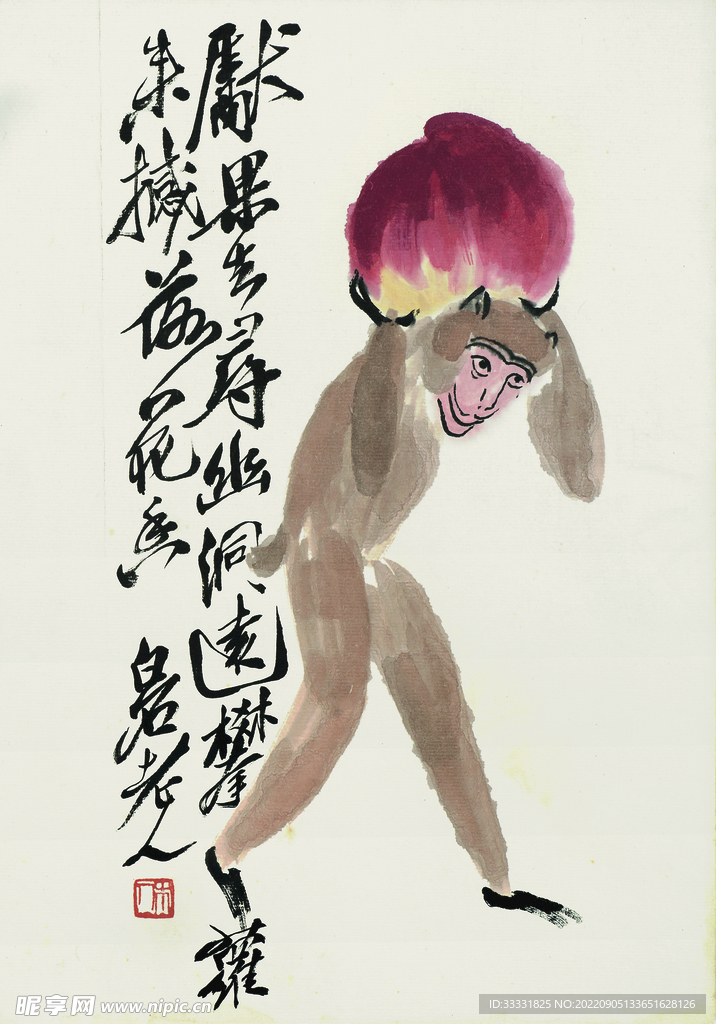 獻果去尋幽洞遠攀蘿
来撼落花香
白石老人
木人
昵享网 www.nipic.cn
ID:33331825 NO:20220905133651628126